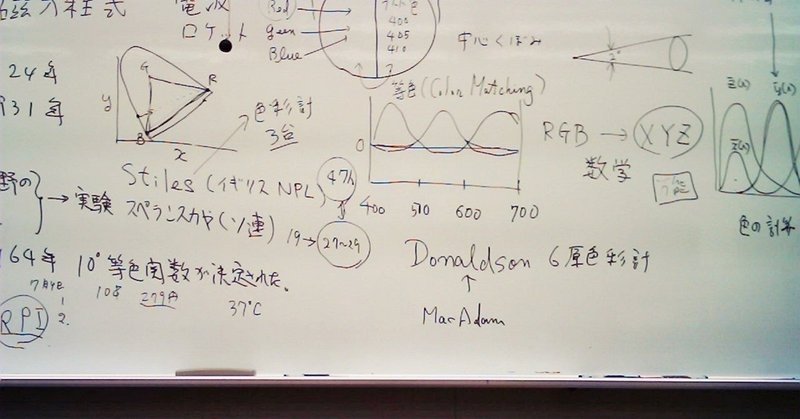 電波
ロケット
Red
Green
Blue
400
405
410
中心くぼみ
2°
24年
931年
y
G
R
B
x
色彩計
3台
等色(Color Matching)
0
400
510
600
700
RGB → XYZ
数学
z(λ)
y(λ)
x(λ)
色の計算
野の
→ 実験
Stiles (イギリス NPL)
47人
スペランスカヤ (ソ連)
19→
27~29
164年
10°等色関数が決定された。
7月4日
108
279円
37°C
1
2.
RPI
Donaldson 6原色彩計
↑
MacAdam